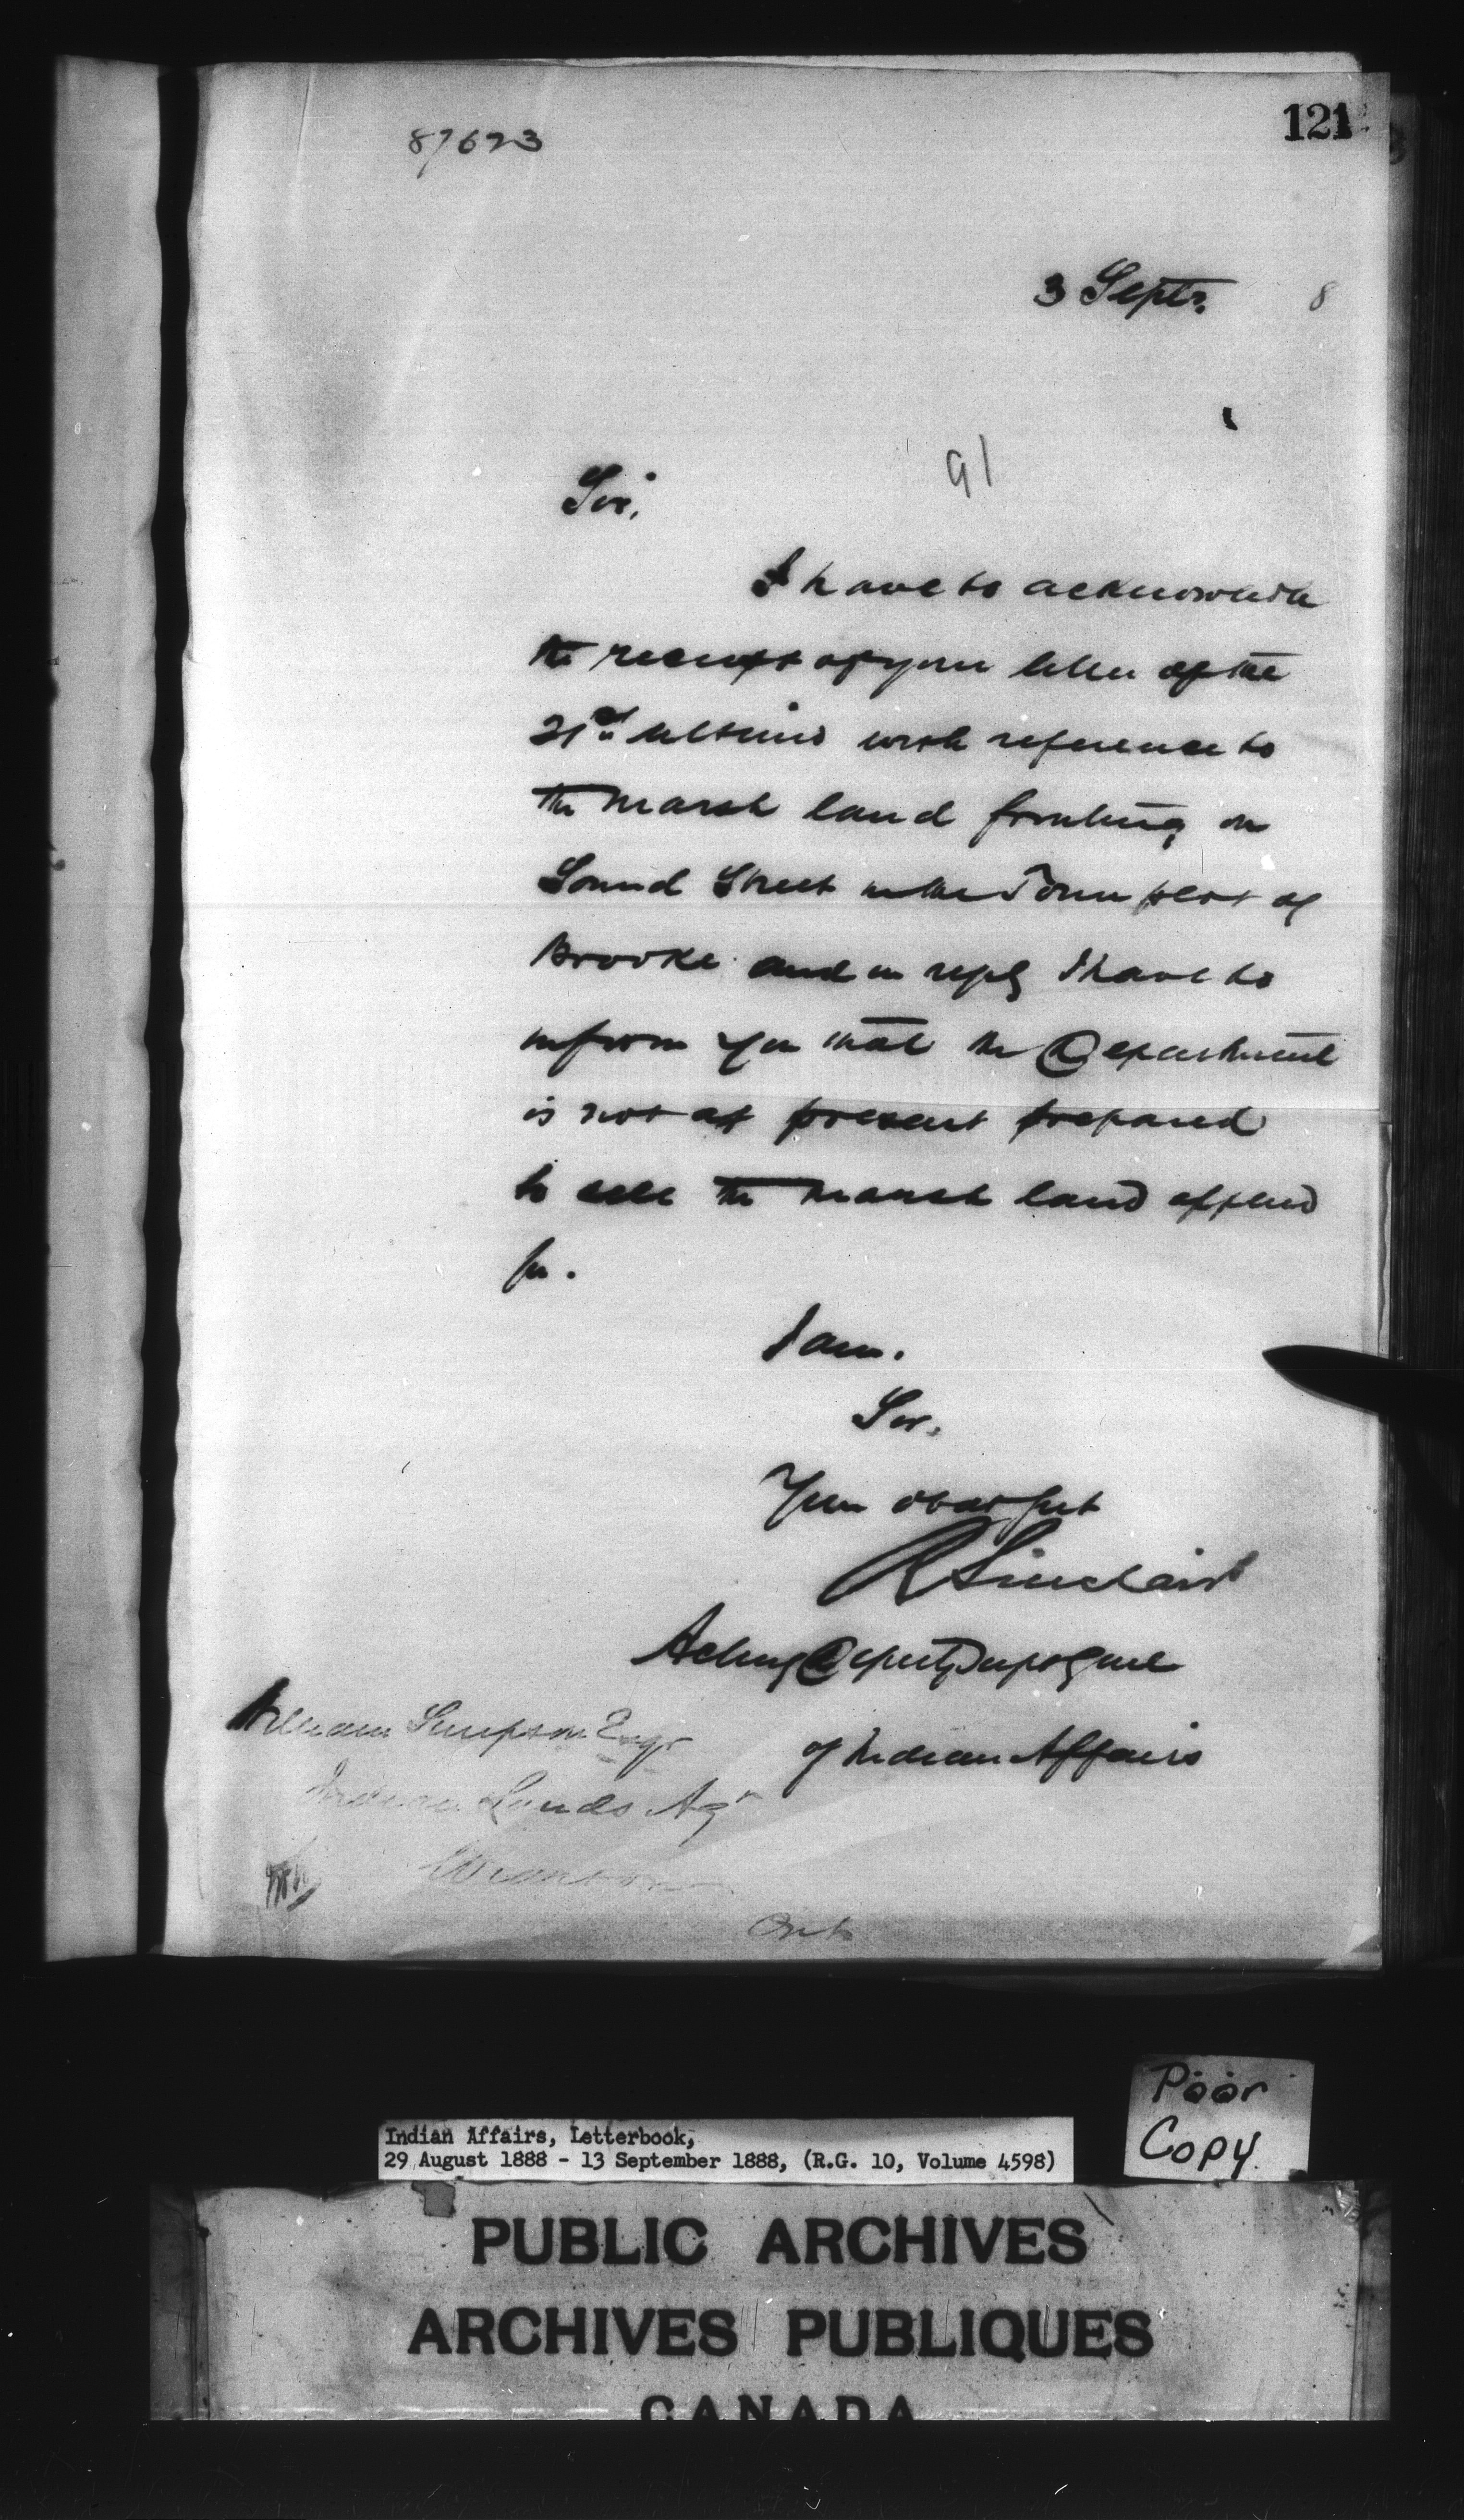 121
87623
3 Septr. 8
91
Sir,
I have to acknowledge
the receipt of your letter of the
21st ultimo with reference to
the Marsh land fronting on
Sound Street in the Town plot of
Brooke and in reply I have to
inform you that the Department
is not at present prepared
to sell the marsh land applied
for.
I am.
Sir,
Your obedt servt
R Sinclair
Acting Deputy Supt Genl
of Indian Affairs
William Simpson Esqr
Indian Lands Agt
Wiarton
Ont
Poor
Copy.
Indian Affairs, Letterbook,
29 August 1888 - 13 September 1888, (R.G. 10, Volume 4598)
PUBLIC ARCHIVES
ARCHIVES PUBLIQUES
CANADA